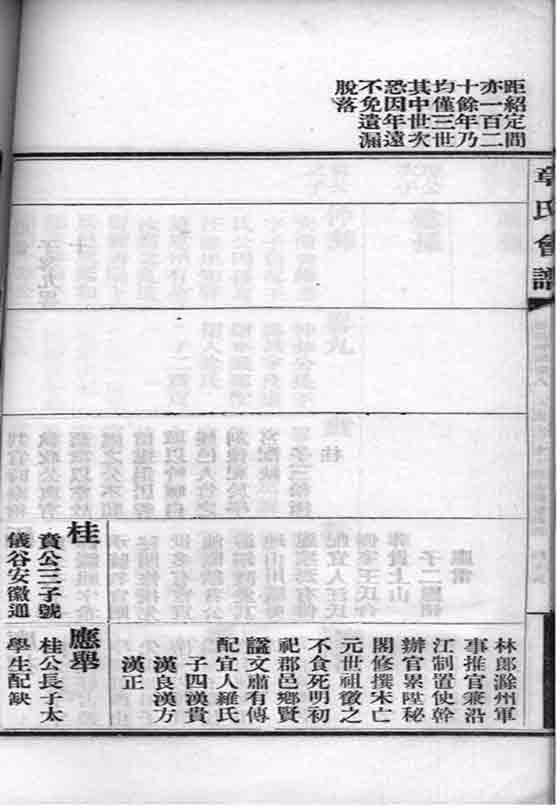 章氏會譜
距紹定間
亦一百二
十餘年乃
均僅三世
其中世次
恐因年遠
不免遺漏
脫落
桂
賁公三子號
儀谷安徽通
林郎滁州軍
事推官兼沿
江制置使幹
辦官累陞秘
閣修撰宋亡
元世祖徵之
不食死明初
祀郡邑鄉賢
謚文肅有傳
配宜人羅氏
子四漢貴
漢良漢方
漢正
應舉
桂公長子太
學生配缺